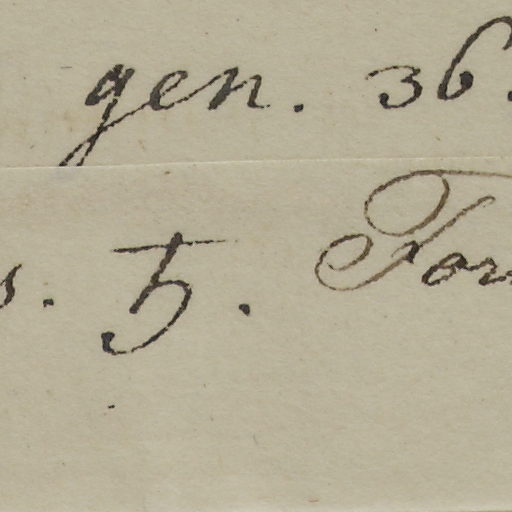 gen. 36.
s. 5. Tor